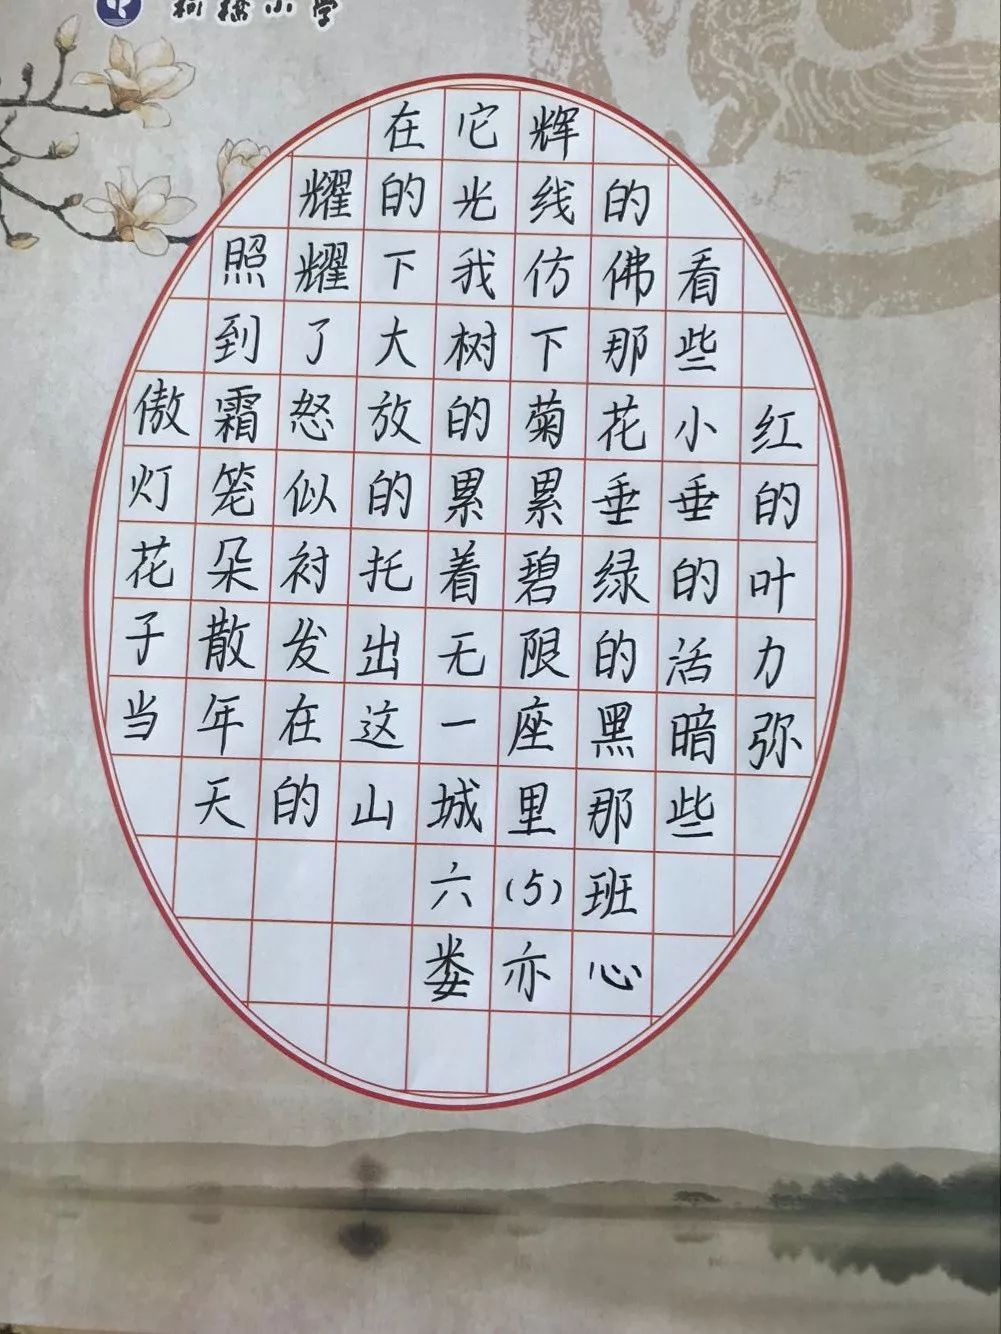 柯桥小学
在它辉
耀的光线的
照耀下我仿佛看
到了大树下那些
傲霜怒放的菊花小红
灯笼似的累累垂垂的
花朵衬托着碧绿的叶
子散发出无限的活力
当年在这一座黑暗弥
天的山城里那些
六(5)班
娄亦心